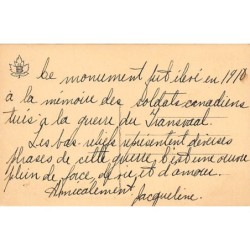 Ce monument fut élevé en 191
à la mémoire des soldats canadiens
tués à la guerre du Transvaal.
Les bas-reliefs représentent diverses
phases de cette guerre, c'est une œuvre
plein de force, de vie, et d'amour.
Amicalement Jacqueline.